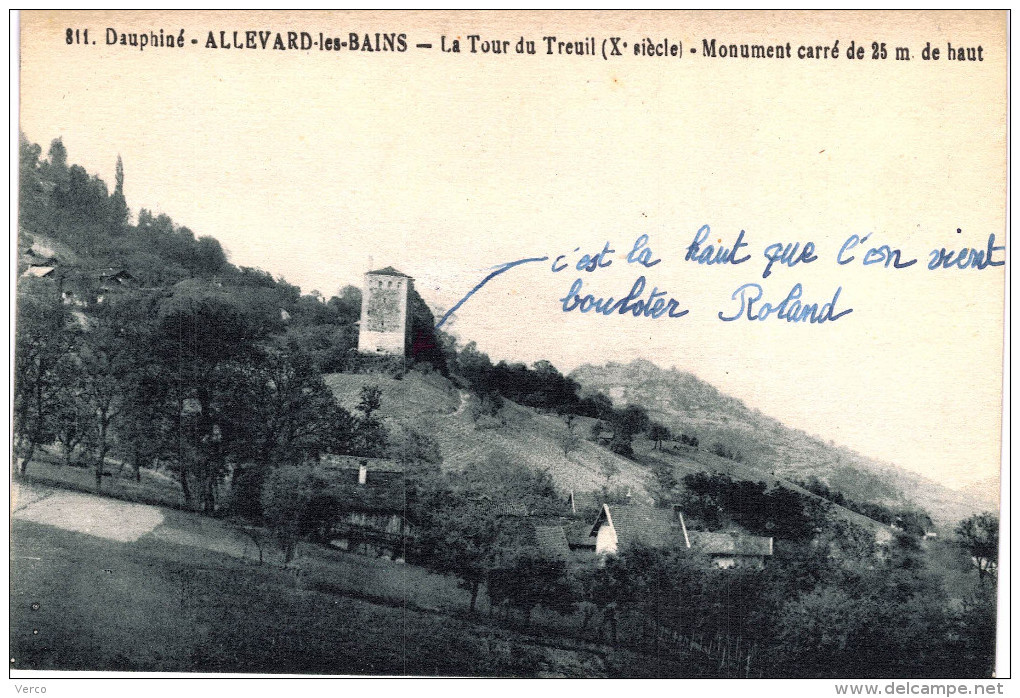 811. Dauphiné - ALLEVARD-les-BAINS - La Tour du Treuil (Xe siècle) - Monument carré de 25 m. de haut
c'est la haut que l'on vient
bouloter Roland
Verco
www.delcampe.net